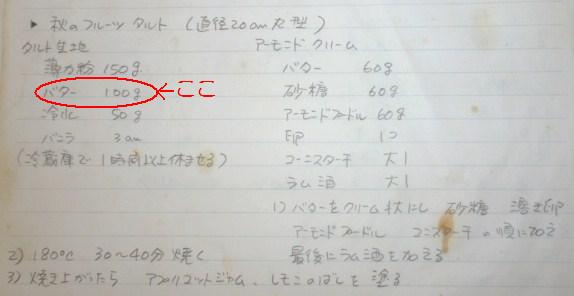 ▶ 秋のフルーツ タルト (直径20cm丸型)
タルト生地
薄力粉 150g
バター 100g ←ここ
冷水 50g
バニラ 3cm
(冷蔵庫で1時間以上休ませる)
アーモンド クリーム
バター 60g
砂糖 60g
アーモンドプードル 60g
卵 1コ
コーンスターチ 大1
ラム酒 大1
1) バターをクリーム状にし 砂糖 溶き卵
アーモンドプードル コンスターチの順に加え
最後にラム酒を加える
2) 180℃ 30〜40分 焼く
3) 焼き上がったら アプリコットジャム、しモンのばしを塗る